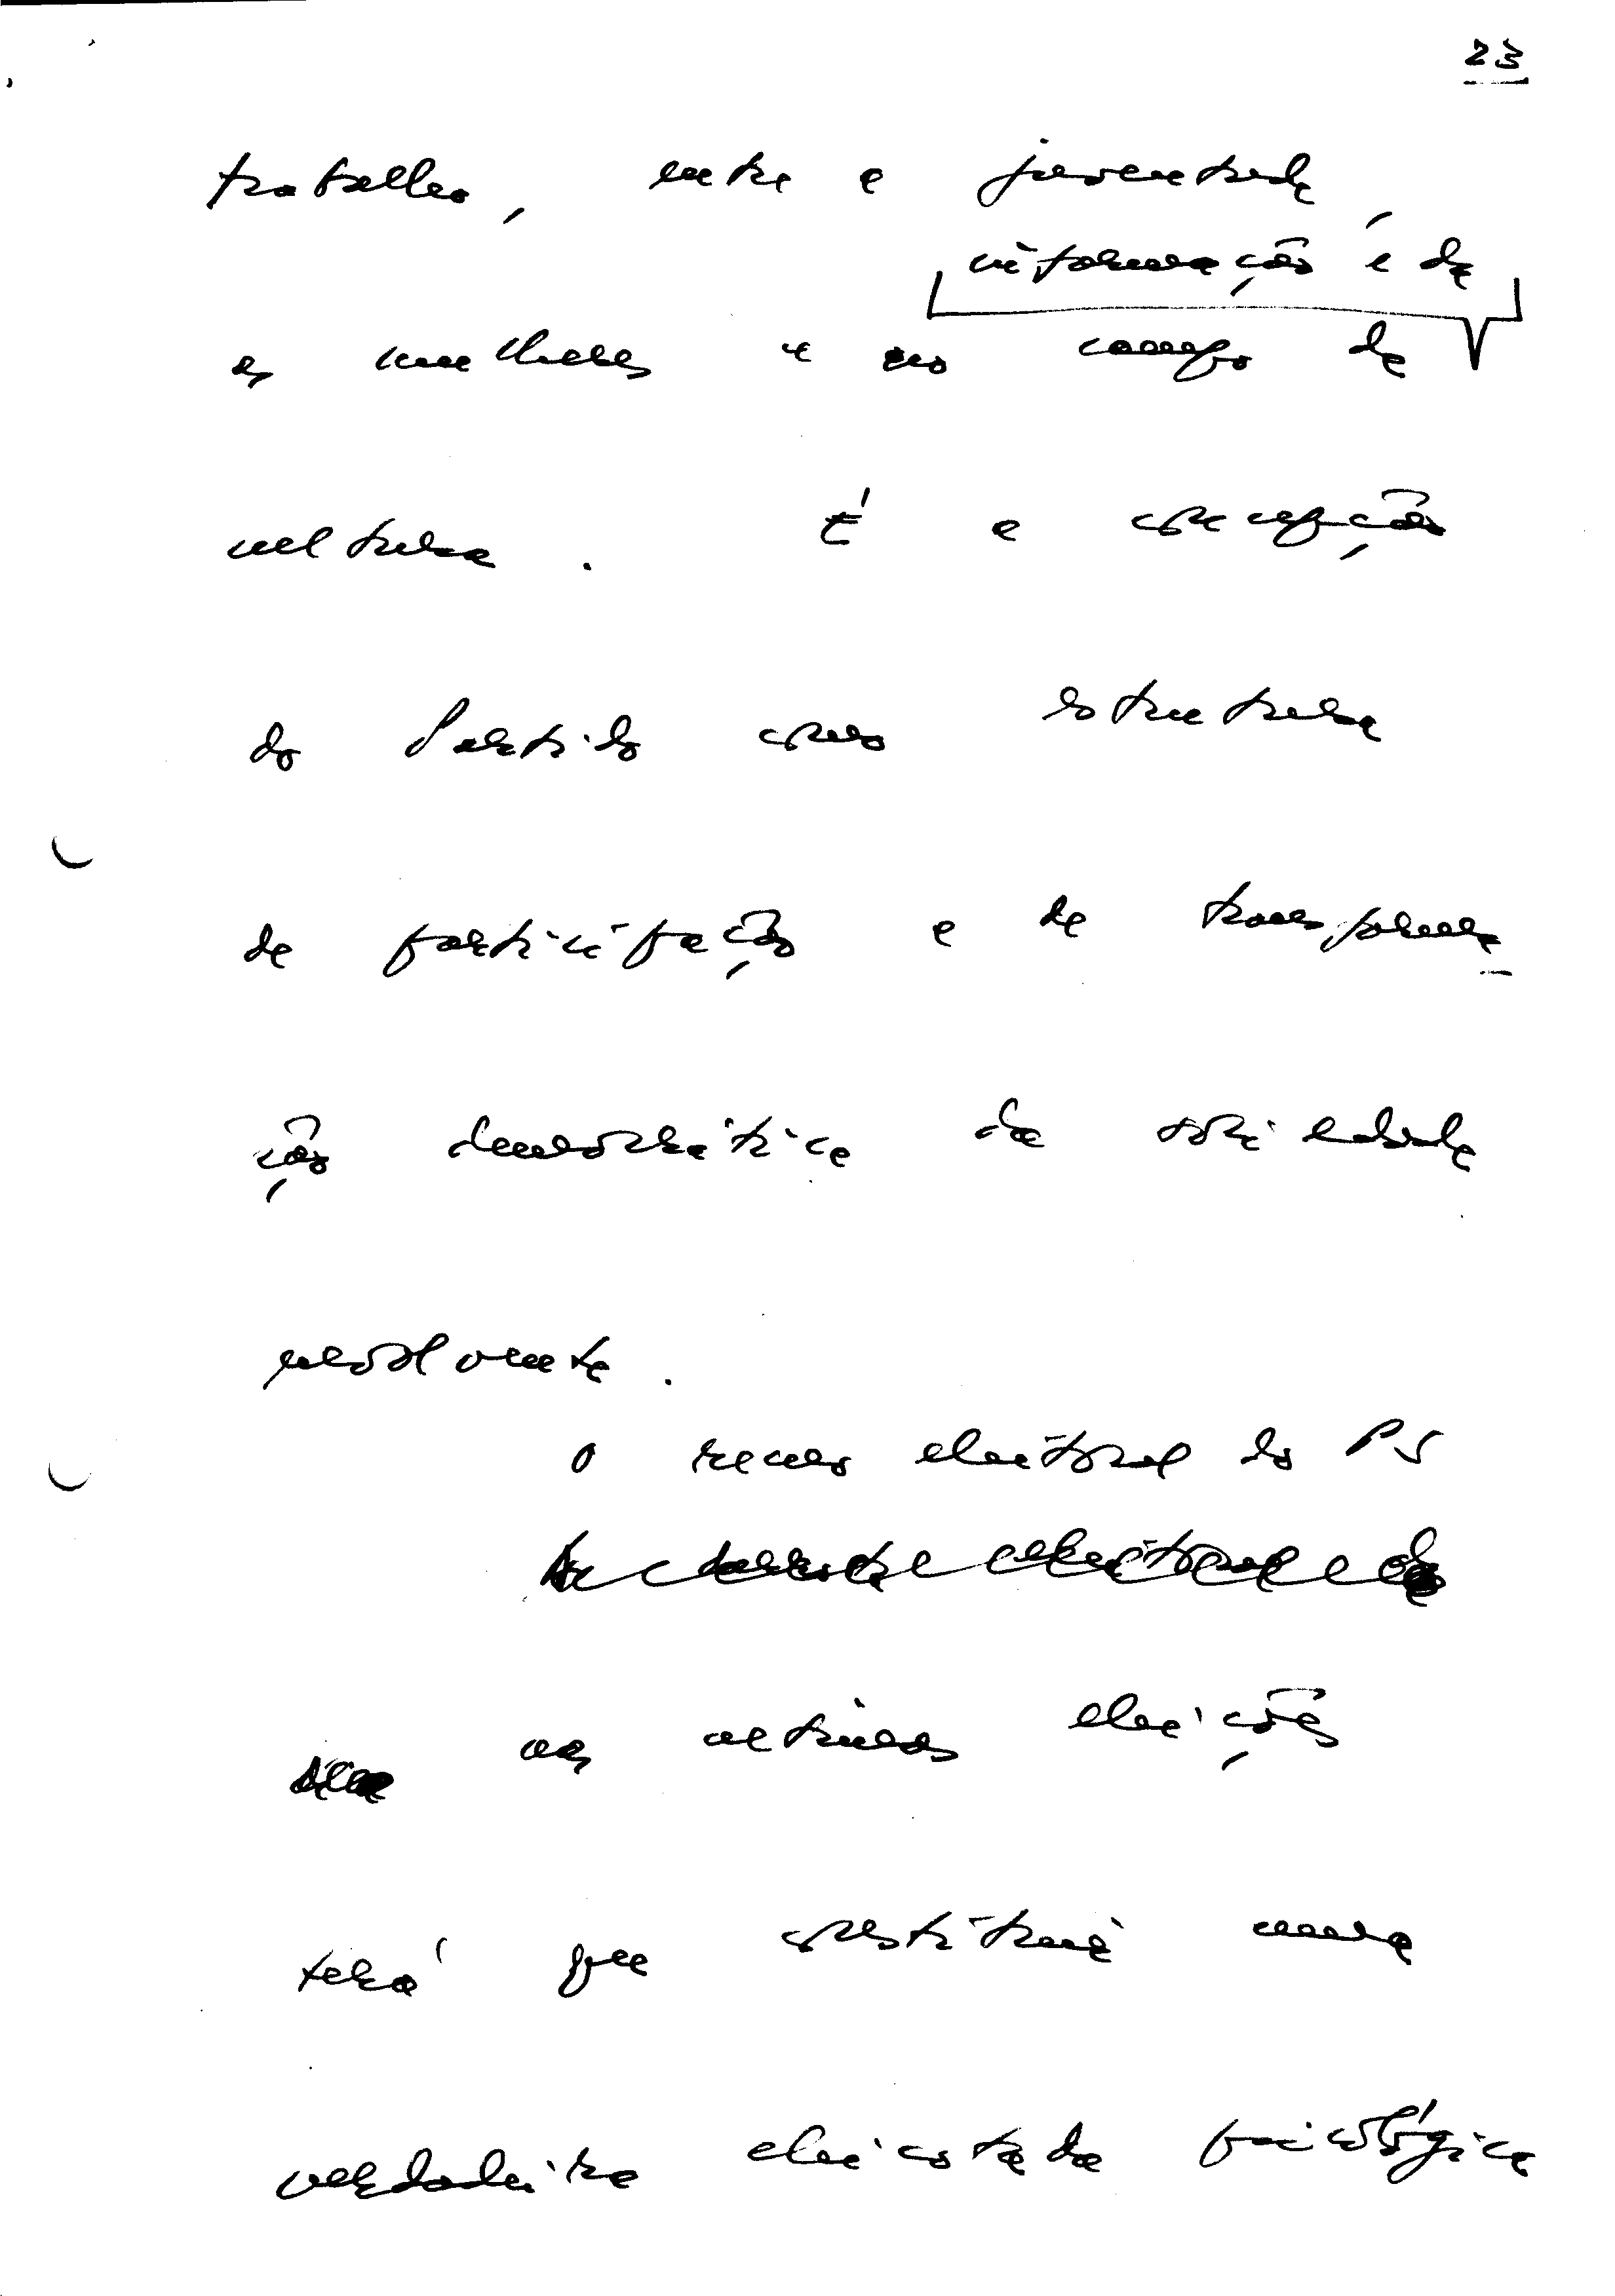 23
trabalho, entre a juventude,
informação e da
as mulheres e no campo da
cultura. É a concepção
do Partido como estrutura
de participação e de transforma
ção democrática da sociedade
envolvente.
O recuo eleitoral do PS
nas últimas eleições
terá que constituir uma
verdadeira chicotada psicológica